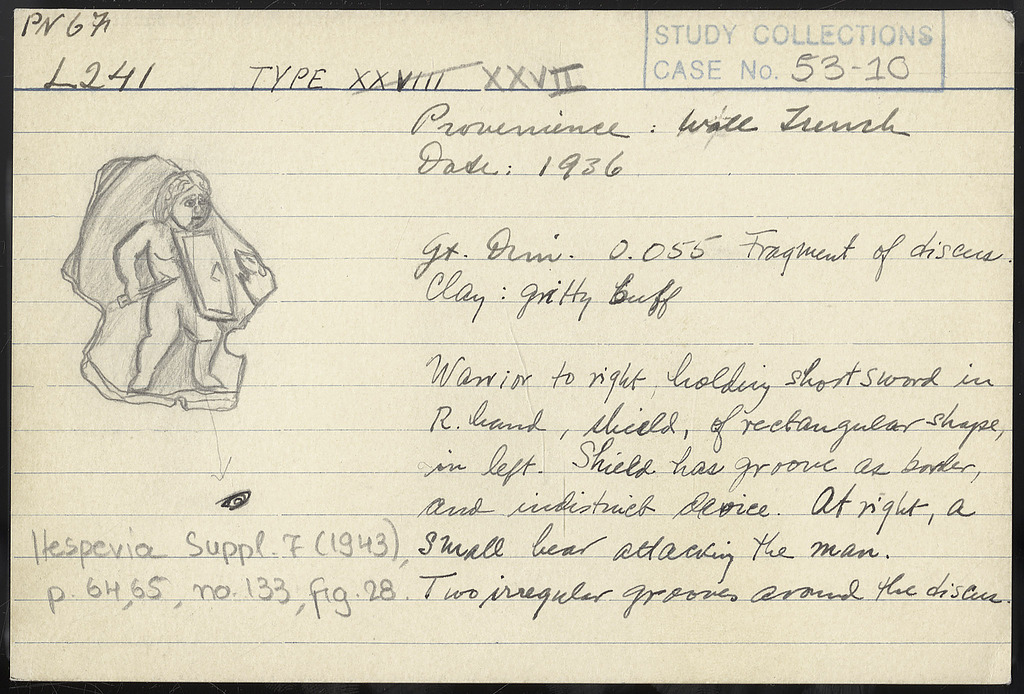 PN 67
STUDY COLLECTIONS
CASE No. 53-10
L 241 TYPE XXVIII XXVII
Provenience : Wall Trench
Date : 1936
Gt. Dim. 0.055 Fragment of discus.
Clay : gritty buff
Warrior to right, holding short sword in
R. hand, shield, of rectangular shape,
in left. Shield has groove as border,
and indistinct device. At right, a
small bear attacking the man.
Two irregular grooves around the discus.
Hesperia Suppl. 7 (1943),
p. 64,65, no. 133, fig. 28.